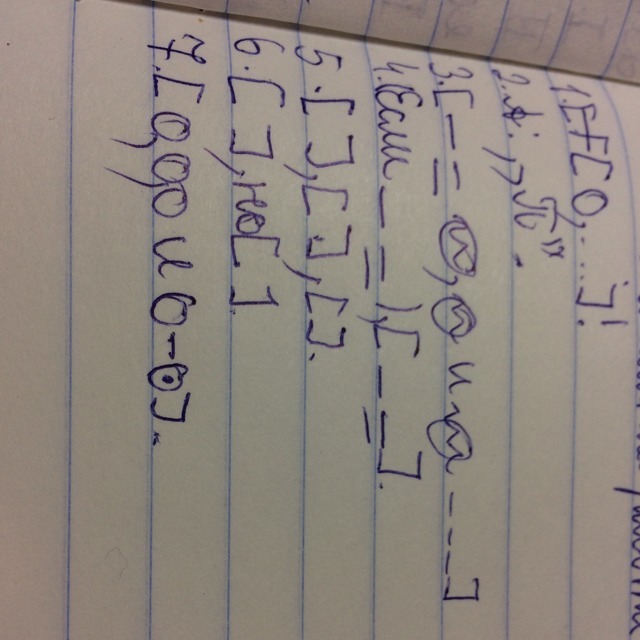 1. [+[ О, ...]!
2. А: „П".
3. [ — = О, О и О ---]
4. (Если — =), [ — =].
5. [ ], [ ], [ ].
6. [ ], но [ ].
7. [ О, О, О и О - О].